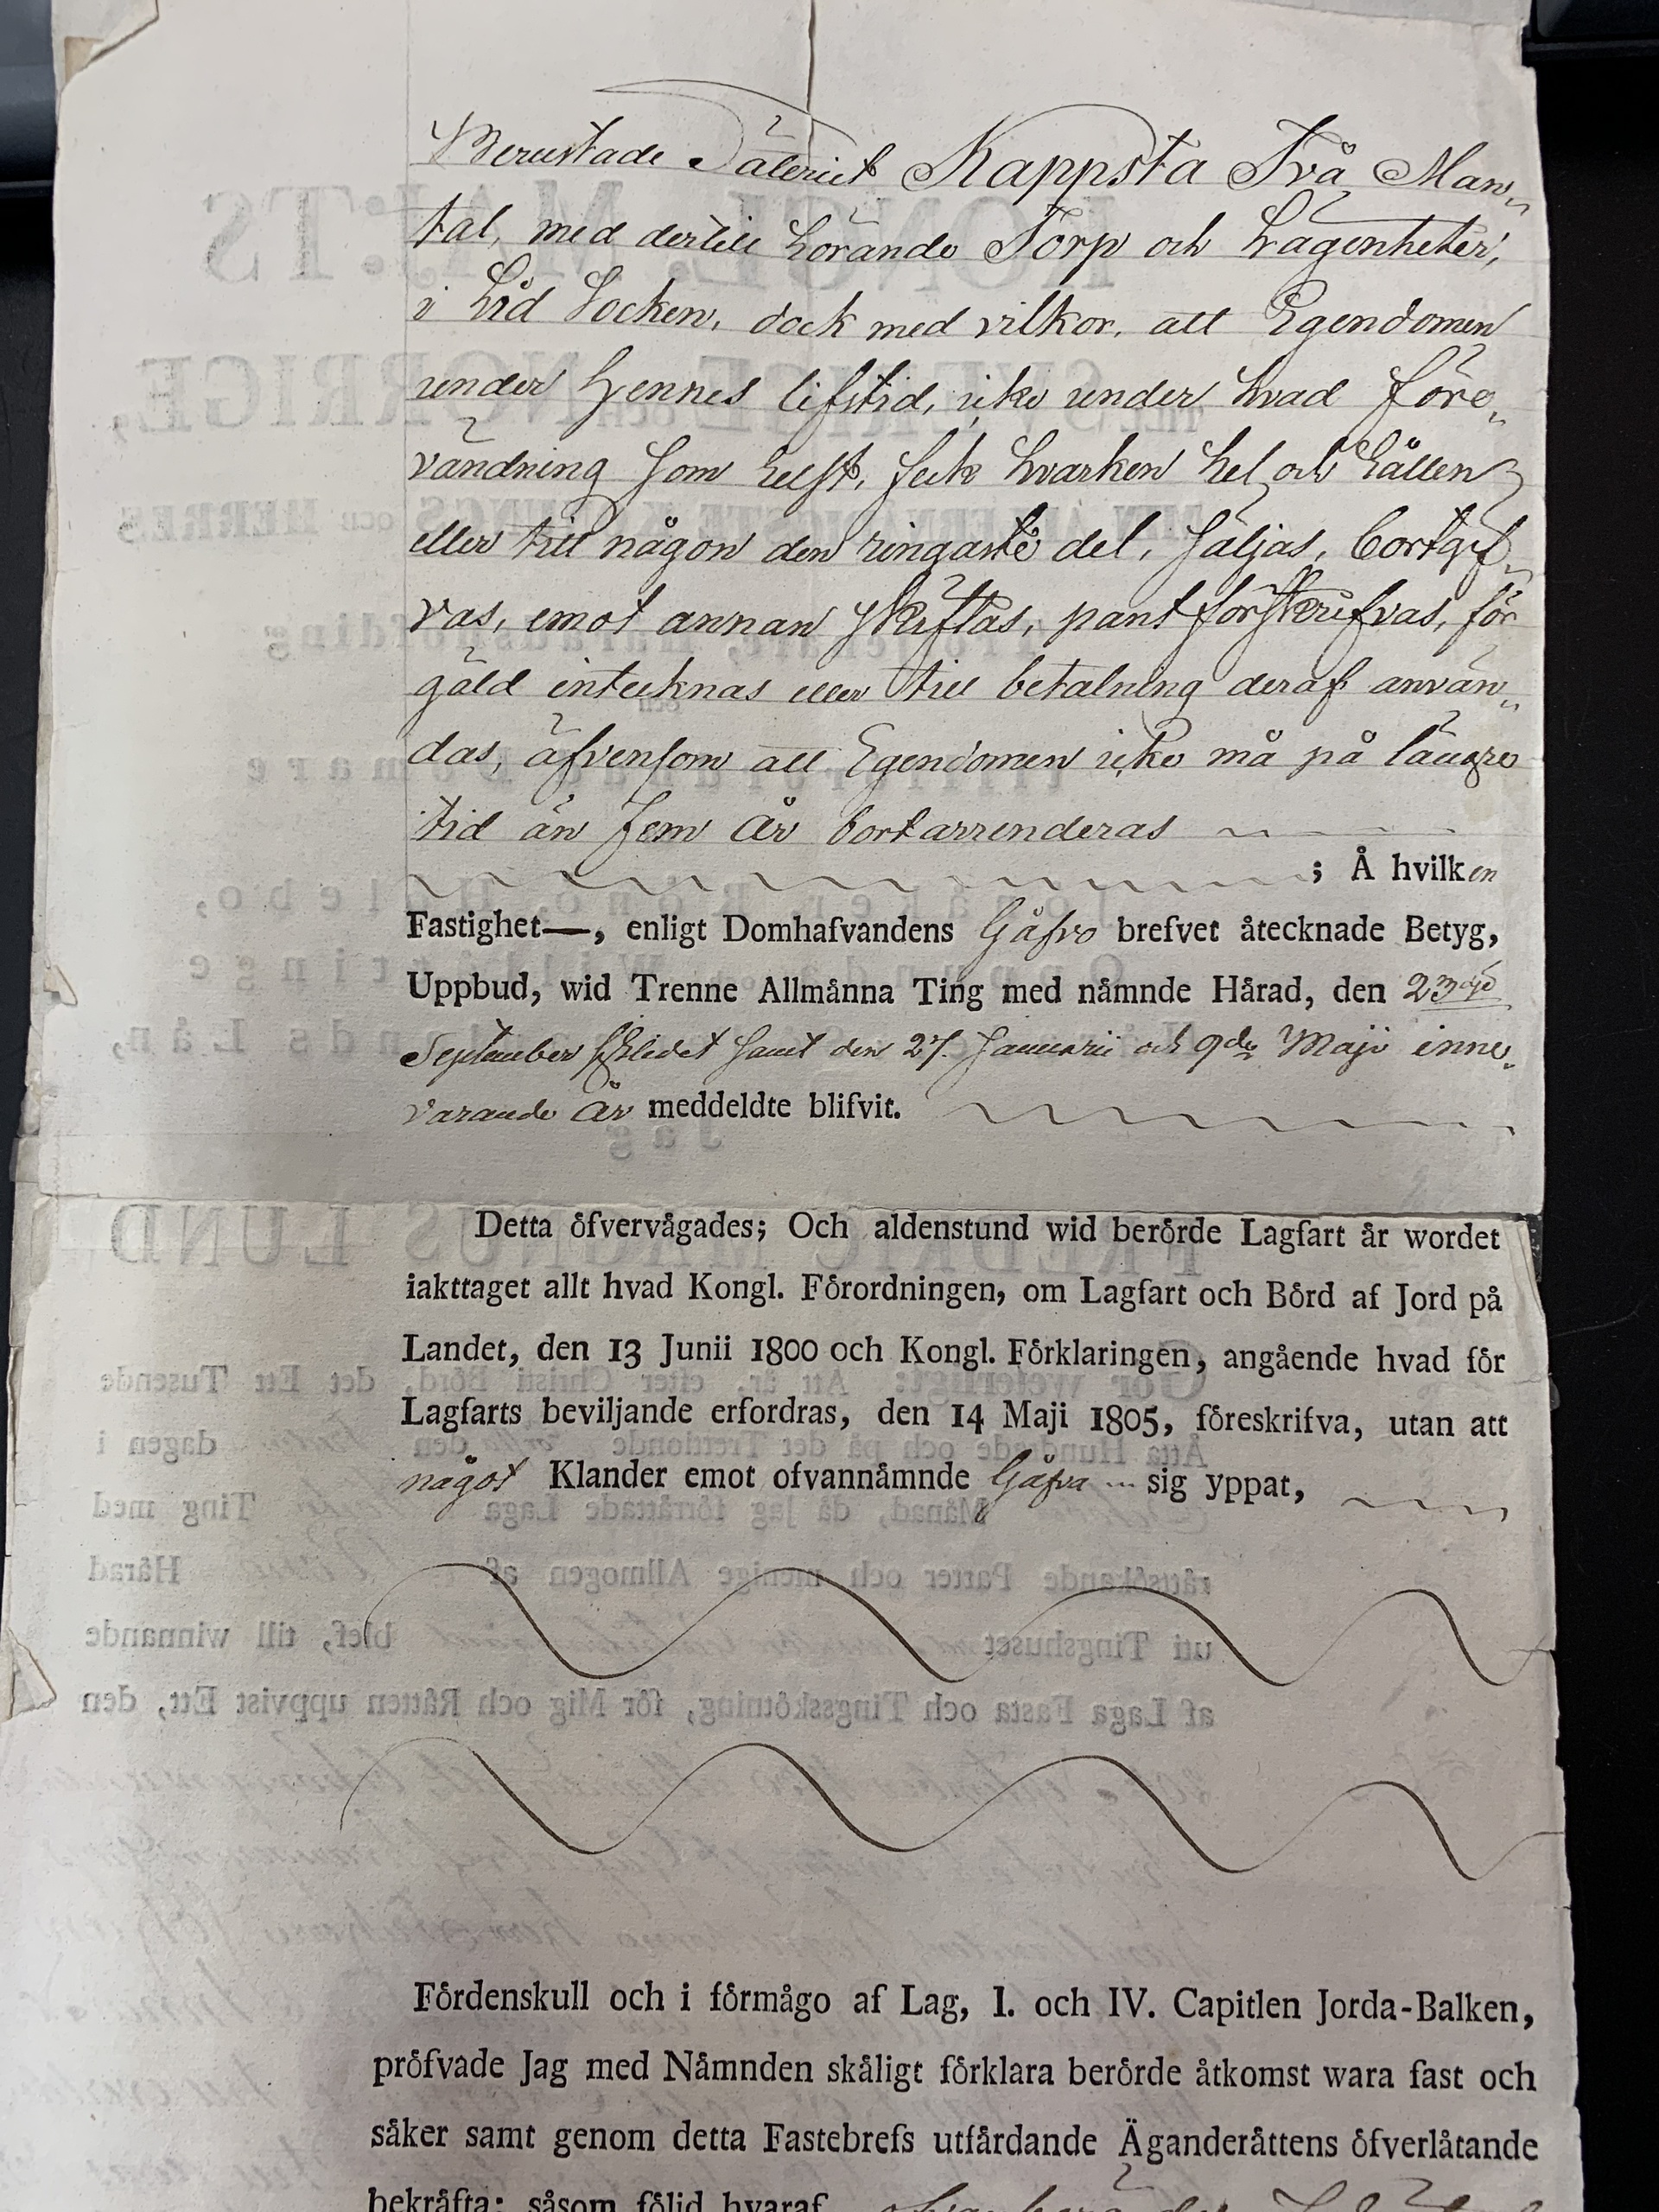 Berustade Säteriet Kappsta Två Man„
tal, med dertill hörande Torp och Lägenheter,
i Lid Socken, dock med vilkor, att Egendomen
under Hennes lifstid, icke under hvad före„
vändning som helst, feck hvarken hel och hållen
eller till någon den ringaste del, säljas, bortgif„
vas, emot annan skiftas, pantförskrifvas, för
gäld intecknas eller till betalning deraf använ„
das, äfvensom att Egendomen icke må på längre
tid än fem år bortarrenderas
; Å hvilken
Fastighet—, enligt Domhafvandens Gåfvo brefvet åtecknade Betyg,
Uppbud, wid Trenne Allmånna Ting med nåmnde Hårad, den 23
September sistledet samt den 27. Januarii och 9de Maji inne„
varande År meddeldte blifvit.
Detta ôfvervågades; Och aldenstund wid berôrde Lagfart år wordet
iakttaget allt hvad Kongl. Fôrordningen, om Lagfart och Bôrd af Jord på
Landet, den 13 Junii 1800 och Kongl. Fôrklaringen, angående hvad fôr
Lagfarts beviljande erfordras, den 14 Maji 1805, fôreskrifva, utan att
något Klander emot ofvannåmnde Gåfva sig yppat,
Fôrdenskull och i fôrmågo af Lag, I. och IV. Capitlen Jorda-Balken,
prôfvade Jag med Nåmnden skåligt fôrklara berôrde åtkomst wara fast och
såker samt genom detta Fastebrefs utfårdande Äganderåttens ôfverlåtande
bekråfta; såsom fôljd hvaraf